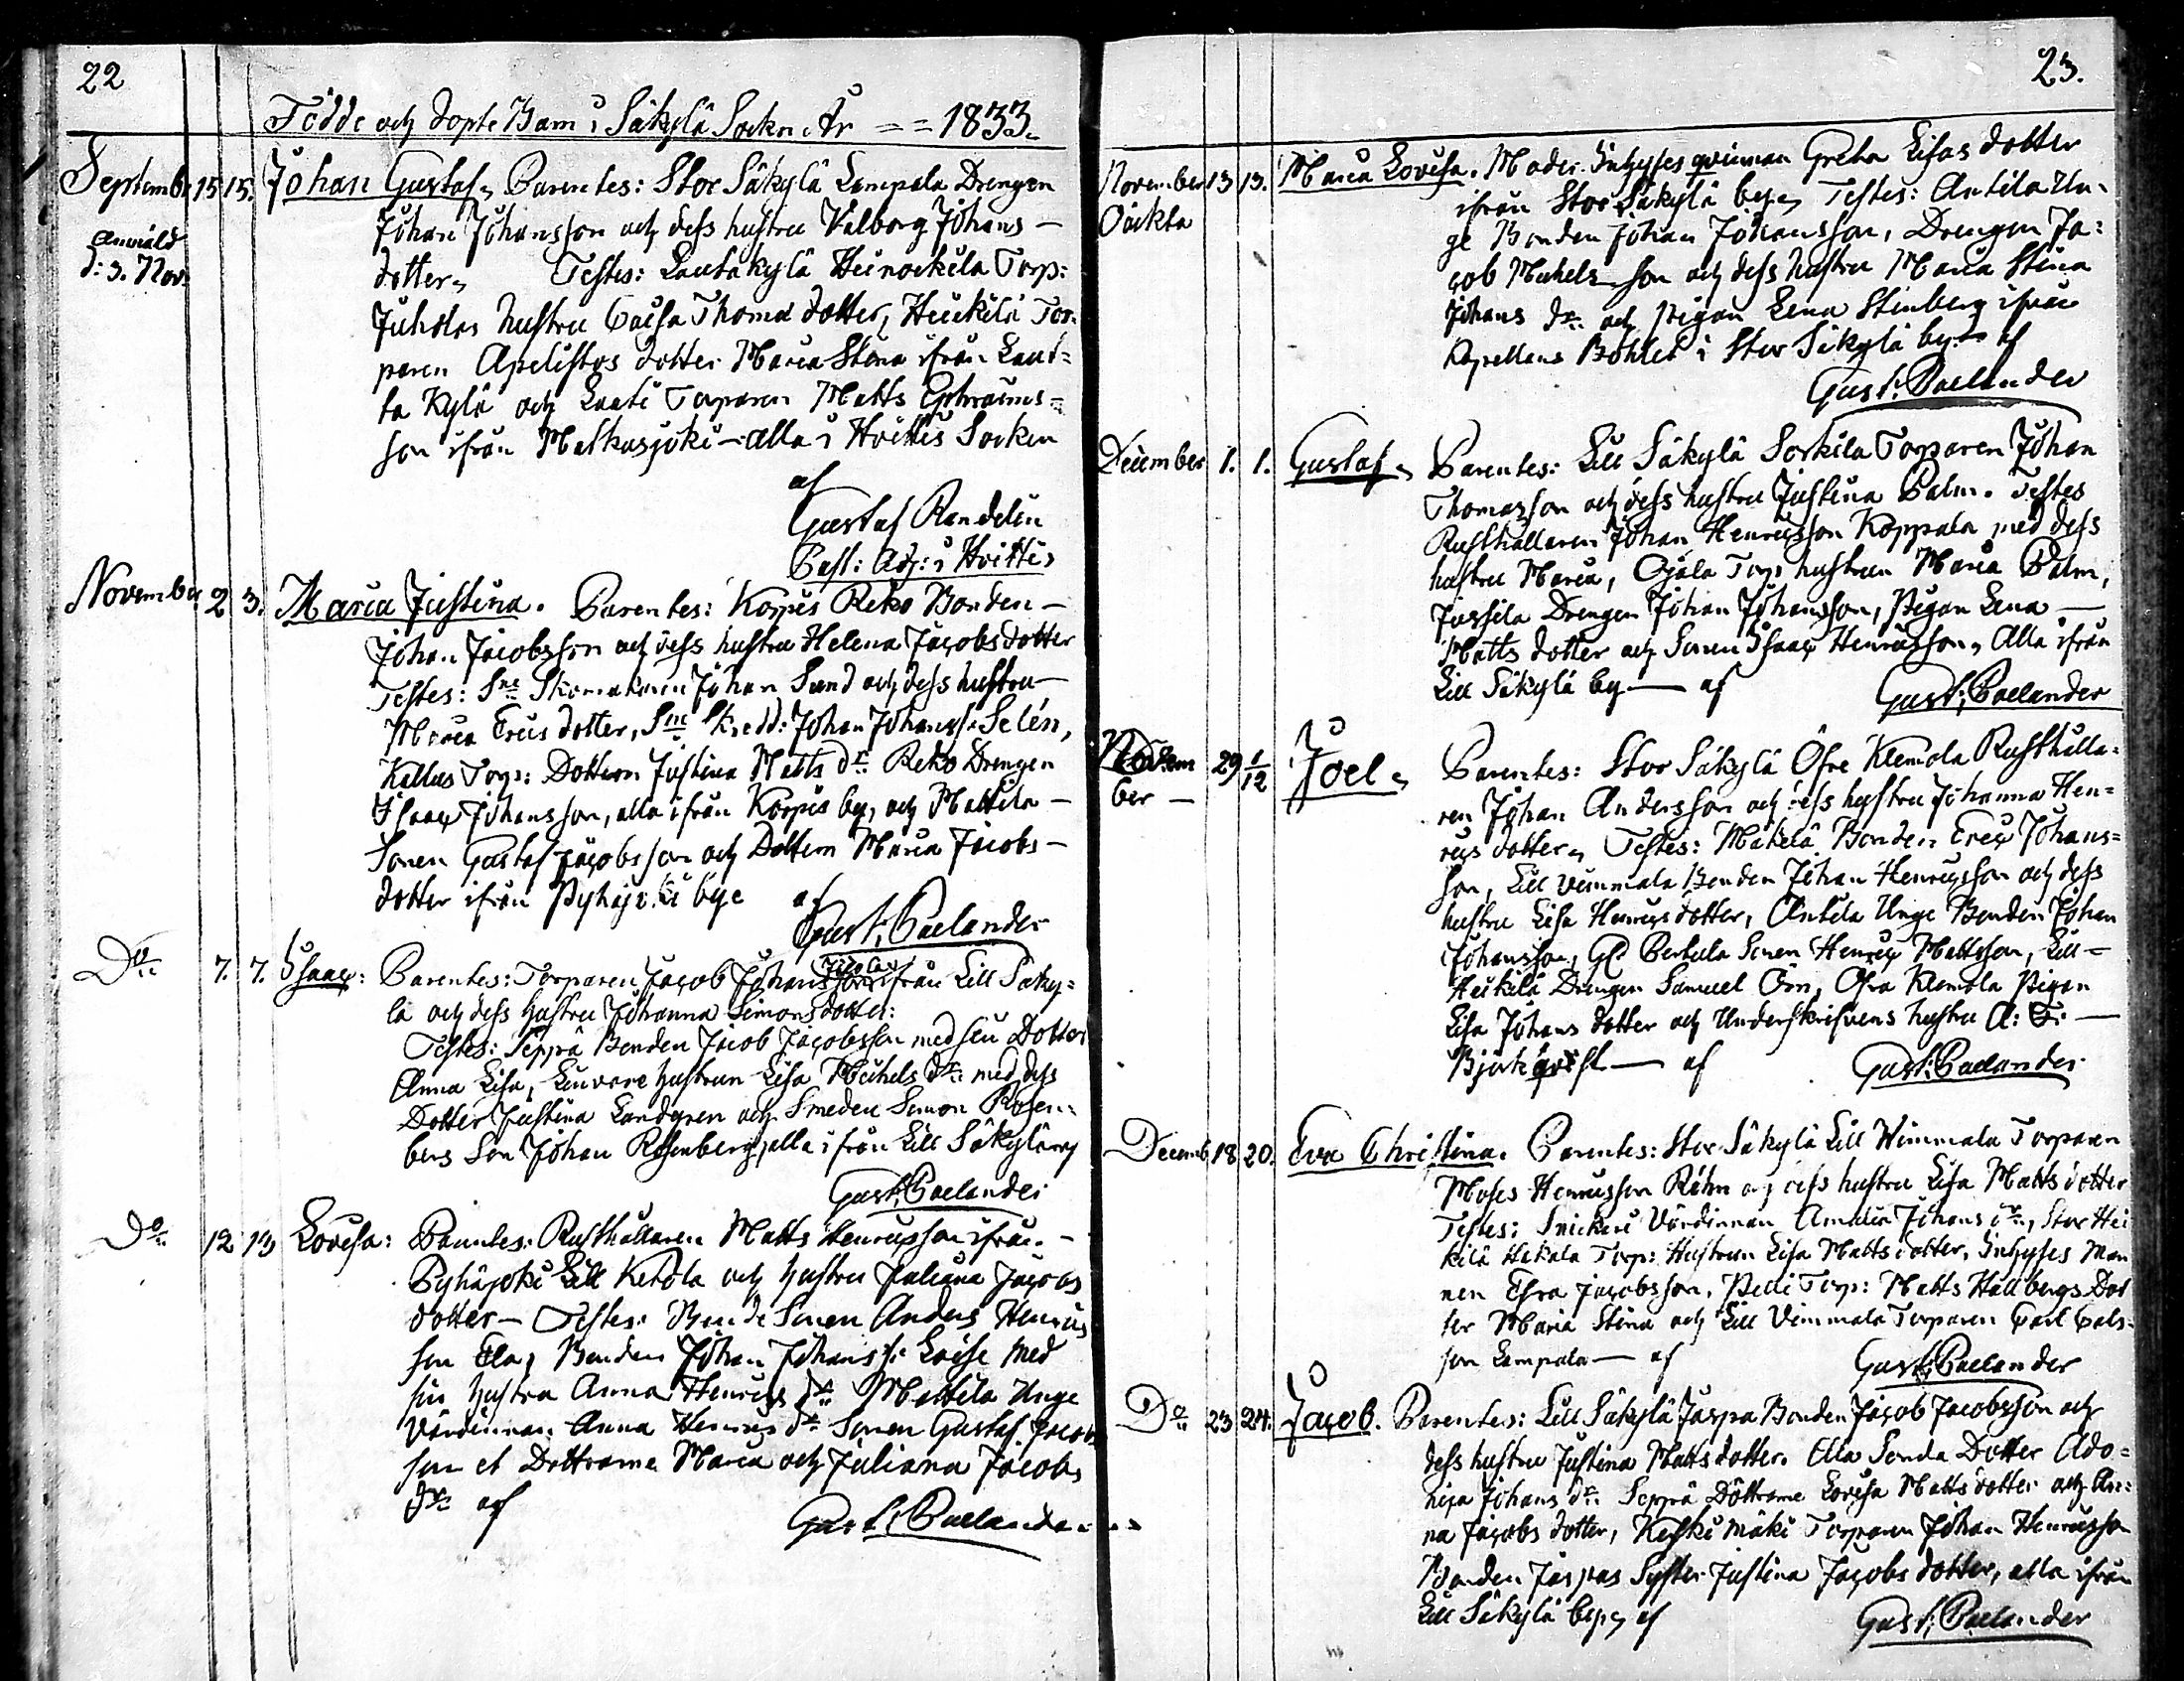 22
Födde och döpte Barn i Säkylä Sockn År == 1833.
Septemb: 15 15. Johan Gustaf, Parentes: Stor Säkylä Lampala Drengen
Johan Johansson och dess hustru Valborg Johans-
Anmäld
d: 3. Nov:
dotter, Testes: Torp:
Juholas hustru Caisa Thomæ dotter, Heickilä Tor-
paren dotter Maria Stina ifrån Laut-
ta Kylä och Lauti Torparen Matts Ephraims=
son ifrån Matkusjoki – alla i Hvittis Socken
af
Gustaf Randelin
Past: Adj: i Hvittis
November 2 3. Maria Justina. Parentes: Korpis Reko Bonden –
Johan Jacobsson och dess hustru Helena Jacobsdotter
Testes: Sne Skomakaren Johan Sund och dess hustru –
Maria Erics dotter, Sne Skredd: Johan Johanss: Selén,
Kallus Torp: Dottern Justina Matts dr: Reko Drengen
Isaac Johansson, alla ifrån Korpis by, och Mattila –
Sonen Gustaf Jacobsson och Dottern Maria Jacobs –
dotter ifrån Pyhäjoki bye af
Gust: Paelander
Do: 7. 7. Isaac: Parentes: Torparen Jacob Johansson ifrån Lill Säky=
lä och dess hustru Johanna Simonsdotter:
Testes: Seppä Bonden Jacob Jacobsson med sin Dotter
Anna Lisa, hustrun Lisa Michels dr: med dess
Dotter Justina Landgren och Smeden Simon Rosen-
bers Son Johan Rosenberg, alla ifrån Lill Säkylä af
Gust: Paelander
Do: 12 13 Lovisa: Parentes: Rusthållaren Matts Henricsson ifrån –
Pyhäjoki Lill Ketola och hustru Juliana Jacobs
dotter – Testes: Bonde Sonen Anders Henrics
son Bonden Johan Johanss: med
sin hustru Anna Henrics dr: Mattila Unge
Värdinnan Anna Henrics dr: Sonen Gustaf Jacobs
son et Döttrarne Maria och Juliana Jacobs
dr: af
Gust: Paelander
23.
November 13 13. Maria Lovisa. Moder: Inhyses qvinnan Greta Lisas dotter
ifrån Stor Säkylä by, Testes: Antila Un-
Oäckta
ge Bonden Johan Johansson, Drengen Ja=
cob Michelsson och dess hustru Maria Stina
Johans dr: och Pigan Lena Stenberg ifrån
Kapellans Bohlet i Stor Säkylä by – af
Gust: Paelander
December 1. 1. Gustaf, Parentes: Lill Säkylä Sorkila Torparen Johan
Thomasson och dess hustru Justina Palm. Testes
Rusthållaren Johan Henricsson Koppala med dess
hustru Maria, Ojala Torp: hustrun Maria Palm,
Jussila Drengen Johan Johansson, Pigan Lena –
Matts dotter och Sonen Isaac Henricsson, Alla ifrån
Lill Säkylä by — af
Gust: Paelander
Novem
ber – 29 1/12 Joel, Parentes: Stor Säkylä Öfre Klemola Rusthålla-
ren Johan Andersson och dess hustru Johanna Hen=
rics dotter, Testes: Mäkelä Bonden Eric Johans=
son, Lill Vimmala Bonden Johan Henricsson och dess
hustru Lisa Henrics dotter, Antila Unge Bonden Johan
Johansson, Gl Pertula Sonen Henric Mattsson, Lill –
Heikilä Drengen Samuel Örn, Öfra Klemola Pigan
Lisa Johans dotter och Underskrifvens hustru –
Björkqvist — af
Gust: Paelander
Decemb 18 20. Eva Christina. Parentes: Stor Säkylä Lill Wimmala Torparen
Moses Henricsson Röhn och dess hustru Lisa Matts dotter
Testes: Snickeri Värdinnan Amalia Johans dr:, Stor Hei
kilä Hakala Torp: Hustrun Lisa Matts dotter, Inhyses Man
nen Esra Jacobsson, Pelli Torp: Matts Hallbergs Dot
ter Maria Stina och Lill Vimmala Torparen Carl Cals-
son Lampala — af
Gust: Paelander
Do: 23 24. Jacob. Parentes: Lill Säkylä Jaspa Bonden Jacob Jacobsson och
dess hustru Justina Matts dotter. Dotter Ado=
Johans dr: Seppä Döttrarne Lovisa Matts dotter och An=
na Jacobs dotter, Keski mäki Torparen Johan Henricsson
Bonden Jaspas Syster Justina Jacobs dotter, alla ifrån
Lill Säkylä by, af
Gust: Paelander